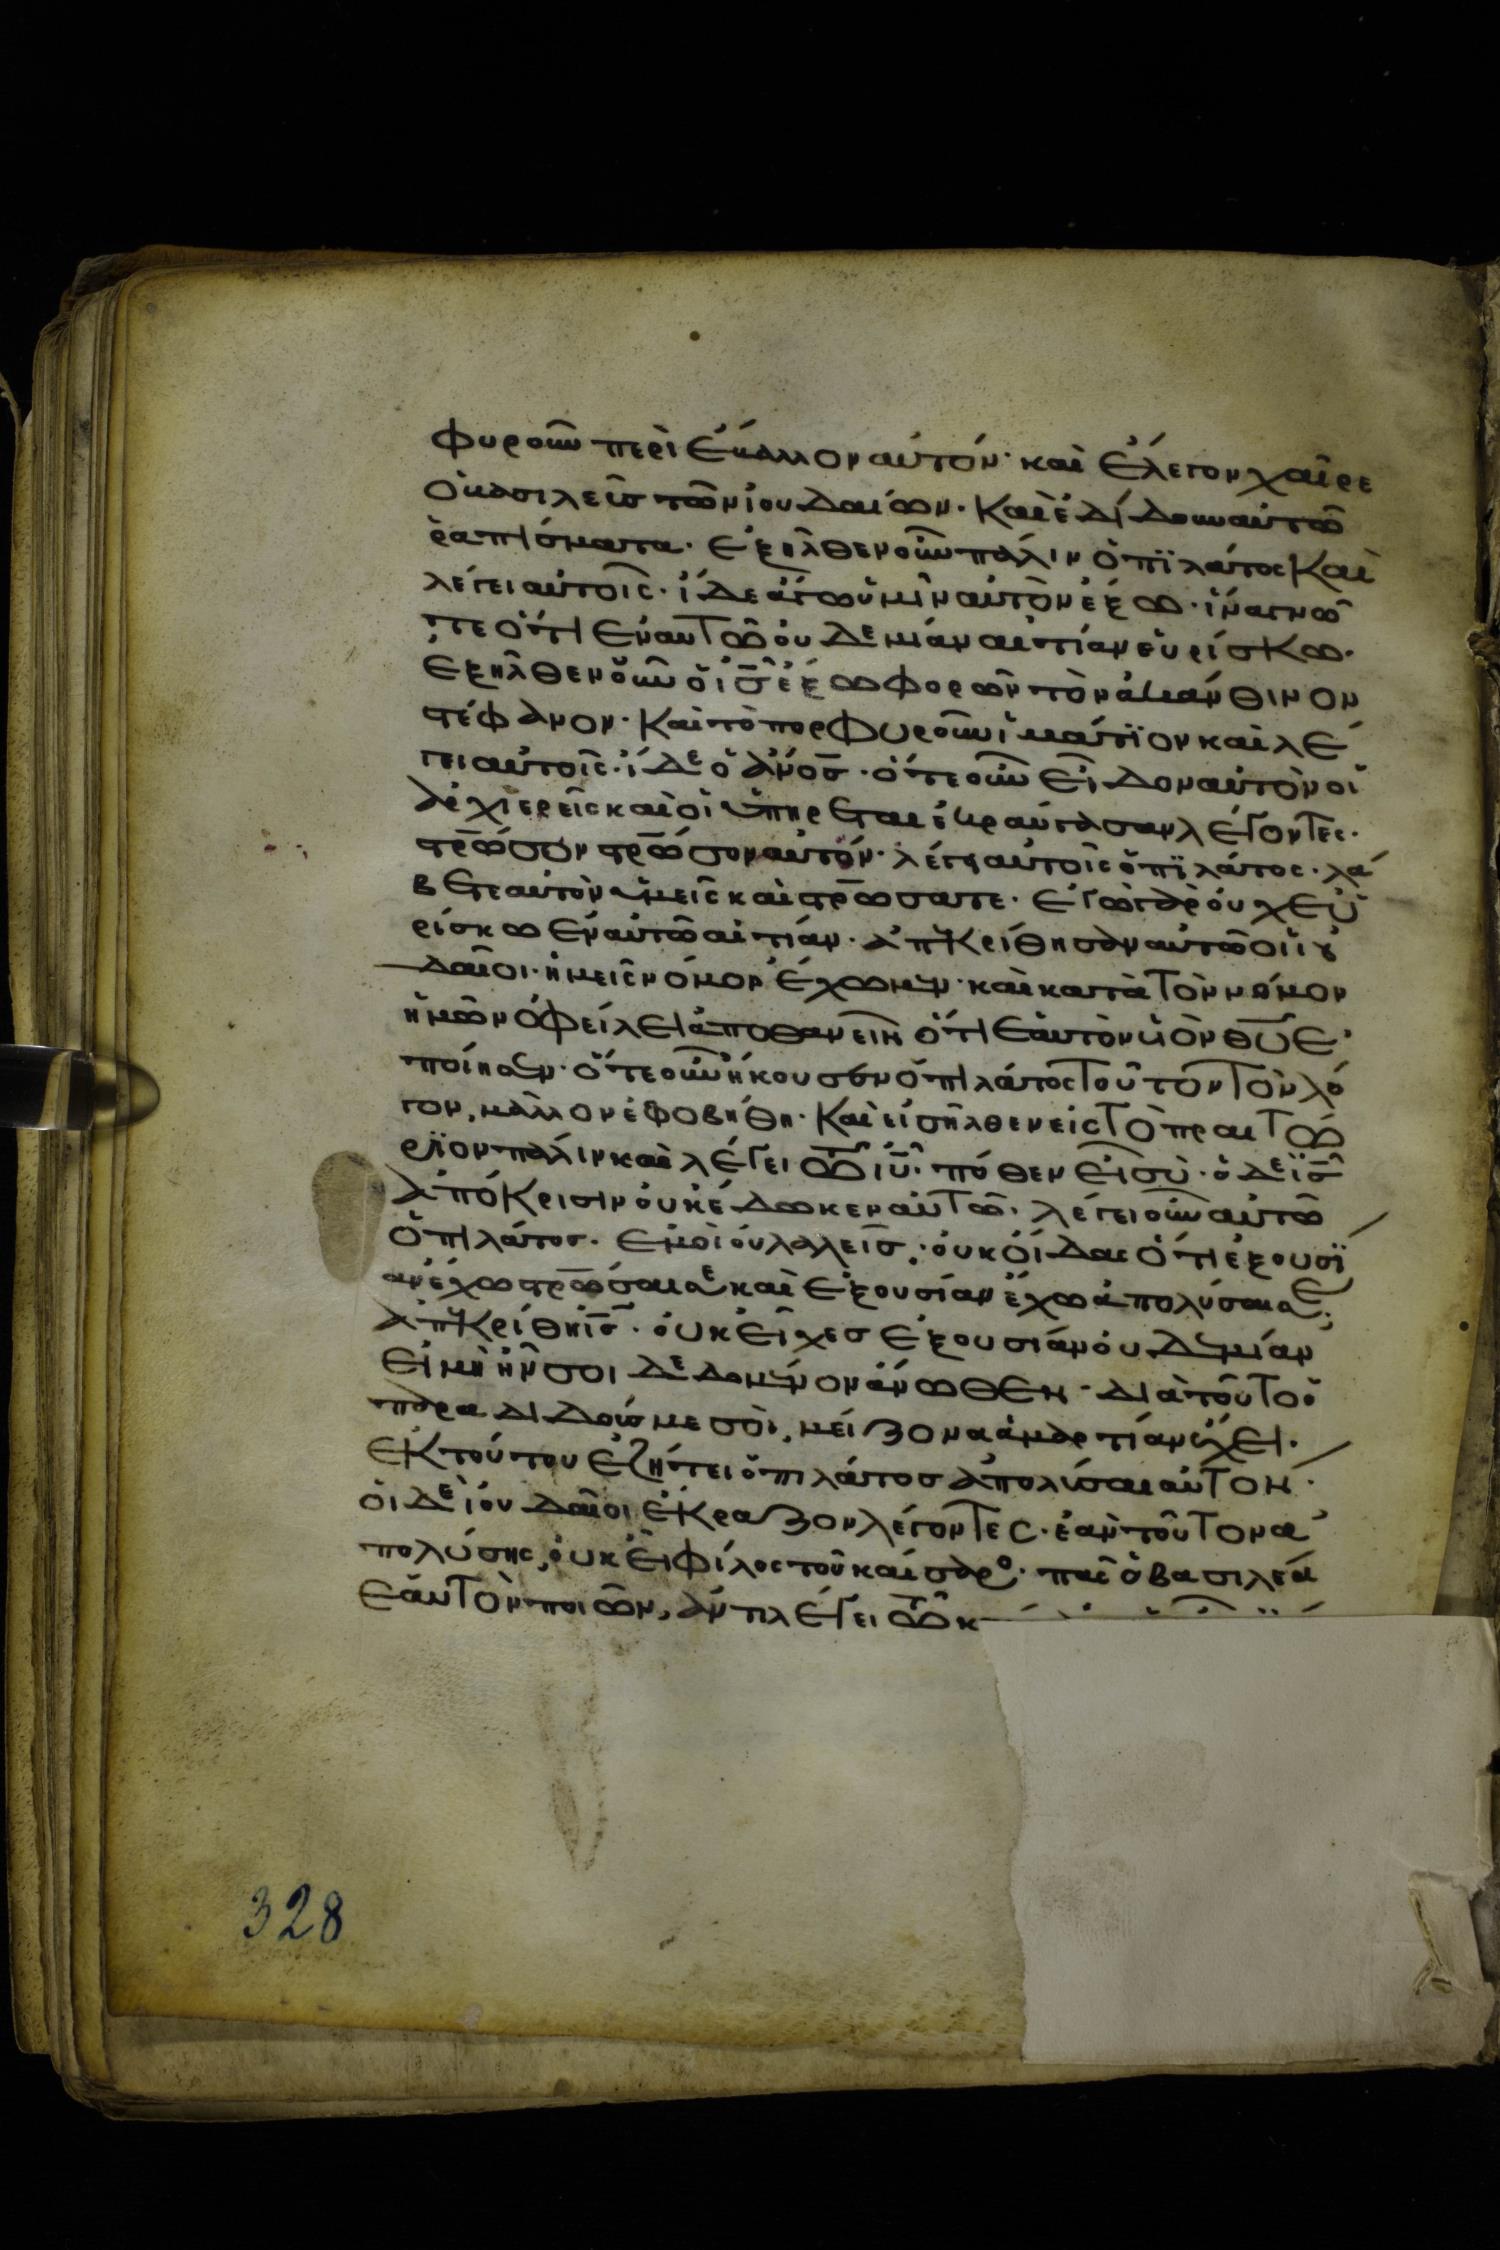 φυροῦν περιέβαλλον αὐτόν· καὶ ἔλεγον χαῖρε
ὁ βασιλεῦς τῶν ἰουδαίων· Καὶ ἐδίδουν αὐτῶ
ῥαπίσματα· ἐξῆλθεν οὖν πάλιν ὁ πϊλάτος Καὶ
λέγει αὐτοῖς· ἴδε ἄγω ὑμῖν αὐτὸν ἔξω· ἵνα γνῶ
τε ὅτι ἐν αυτῶ οὐδεμίαν αἰτίαν εὑρίσκω·
ἐξῆλθεν οὖν ὁ ι̅σ̅ ἔξω φορῶν τὸν ἀκάνθινον
στέφανον· Καὶ τὸ πορφυροῦν ἱμάτϊον καὶ λέ
γει αὐτοῖς· ἴδε ὁ ἄν̅ο̅σ̅· ὅτε οὖν εἶδον αὐτὸν οἱ
ἀρχιερεῖς καὶ οἱ ὑπηρέται ἐκραύγασαν λέγοντες·
στρω̅σον στρω̅σον αὐτόν· λέγει αὐτοῖς ὁ πϊλάτος· λά
βετε αὐτὸν ὑμεῖς καὶ στρω̅σατε· ἐγὼ γὰρ οὐχ εὑ
ρίσκω ἐν αὐτῶ αἰτίαν· ἀπεκρίθησαν αὐτῶ οἱ ἰου
δαῖοι· ἡμεῖς νόμον ἔχωμεν· καὶ κατὰ τὸν νόμον
ἡμῶν ὀφείλει ἀποθανεῖν ὅτι ἑαυτὸν ὑὸν θ̅υ̅ ἐ
ποίησεν· ὅτε οὖν ἤκουσεν ὁ πιλάτος τοῦτον τὸν λό
γον, μᾶλλον ἐφοβήθη· Καὶ εἰσῆλθεν εἰς τὸ πραιτώ
ρϊον πάλιν καὶ λέγει τῶ ι̅υ̅· πόθεν εἶ σὺ· ὁ δὲ ι̅σ̅
ἀπόκρισιν οὐκ έδωκεν αὐτῶ· λέγει οὖν αὐτῶ
ὁ πιλάτοσ· ἐμοὶ οὐ λαλεῖσ; οὐκ οἶδασ ὅτι ἐξουσΐ
αν ἔχω στρω̅σαι σε καὶ ἐξουσίαν ἔχω ἀπολύσαι σε;
ἀπεκρίθη ι̅σ̅· οὐκ εἶχεσ ἐξουσιάν οὐδεμίαν
εἰ μὴ ἦν σοι δεδομένον ἄνωθεν· διὰ τοῦτο ὁ
παραδιδούσ με σοὶ, μείζονα ἁμαρτίαν ἔχει·
ἐκ τούτου ἐζήτει ὁ πιλάτοσ ἀπολύσαι αὐτον·
οἱ δὲ ἰουδαῖοι ἔκραζον λέγοντες· ἐαν τοῦτον ἀ
πολύσης, οὐκ εἶ φίλος τοῦ καίσαρο· πᾶς ὁ βασιλέα
ἑαυτὸν ποιῶν, ἀντιλέγει τῶ κ
328